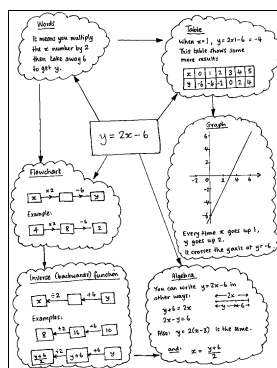 Words
It means you multiply
the x number by 2
then take away 6
to get y.
Table
When x=1, y=2x1-6=-4
This table shows some
more results
x 0 1 2 3 4 5
y -6 -4 -2 0 2 4
y = 2x-6
Graph
6
4
2
-2
-4
-6
2 4 6
Every time x goes up 1,
y goes up 2.
It crosses the y axis at y=-6.
Flowchart
x ×2 -6 y
Example:
4 ×2 8 -6 2
Inverse (backwards) function
x ÷2 +6 y
Examples:
8 ÷2 16 +6 10
y+6/2 ÷2 y+6 +6 y
Algebra
You can write y=2x-6 in
other ways:
y+6 = 2x
2x-y=6
2x
y 6
Also: y = 2(x-3) is the same.
and: x = y+6/2